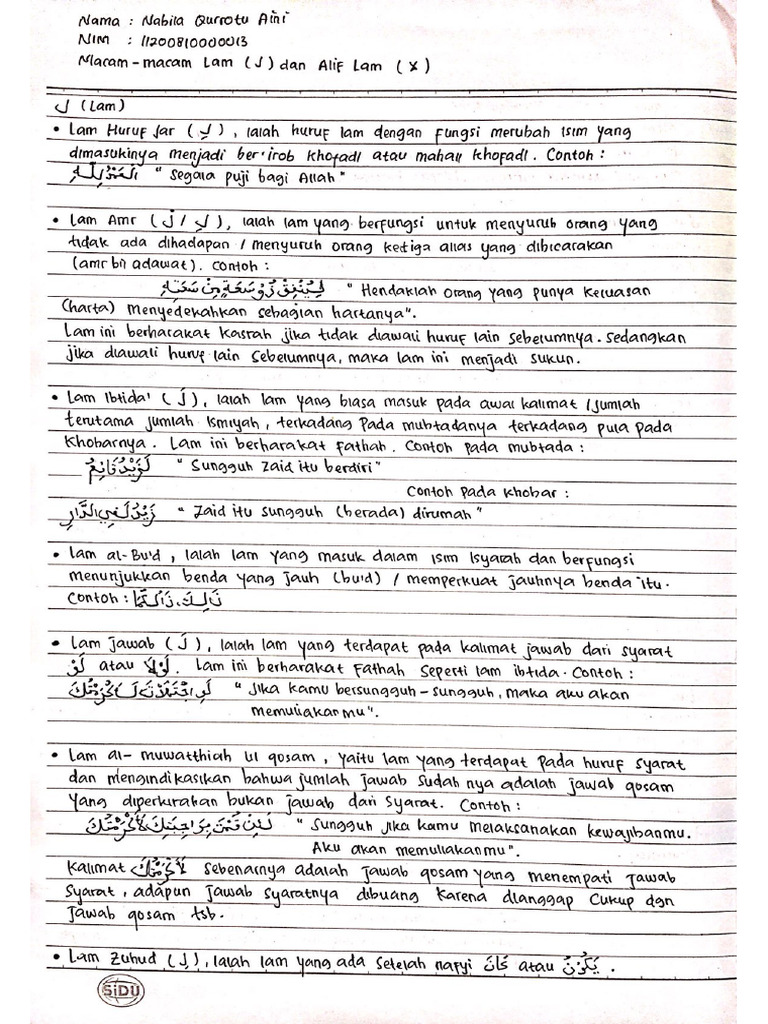 Nama : Nabila Qurrotu Aini
NIM : 11200810000013
Macam-macam Lam (ل) dan Alif Lam (لا)
ل (Lam)
• Lam Huruf Jar (لِ), ialah huruf lam dengan fungsi merubah isim yang
dimasukinya menjadi ber'irob khofadl atau mahall khofadl. Contoh :
الْحَمْدُ لِلّٰهِ "Segala puji bagi Allah"
• Lam Amr (لِ / لْ), ialah lam yang berfungsi untuk menyuruh orang yang
tidak ada dihadapan / menyuruh orang ketiga alias yang dibicarakan
(amr bil adawat). Contoh :
لِيُنْفِقْ ذُوْ سَعَةٍ مِنْ سَعَتِهِ "Hendaklah orang yang punya keluasan
(harta) menyedekahkan sebagian hartanya".
Lam ini berharakat kasrah jika tidak diawali huruf lain sebelumnya. Sedangkan
jika diawali huruf lain sebelumnya, maka lam ini menjadi sukun.
• Lam Ibtida' (لَ), ialah lam yang biasa masuk pada awal kalimat / jumlah
terutama jumlah ismiyah, terkadang pada mubtadanya terkadang pula pada
khobarnya. Lam ini berharakat fathah. Contoh pada mubtada :
لَزَيْدٌ قَائِمٌ "Sungguh Zaid itu berdiri"
Contoh pada khobar :
زَيْدٌ لَفِي الدَّارِ "Zaid itu sungguh (berada) dirumah"
• Lam al-Bu'd, ialah lam yang masuk dalam isim isyarah dan berfungsi
menunjukkan benda yang jauh (bu'd) / memperkuat jauhnya benda itu.
Contoh : ذَالِكَ،
• Lam Jawab (لَ), ialah lam yang terdapat pada kalimat jawab dari syarat
لَوْ atau لَوْلَا. Lam ini berharakat fathah seperti lam ibtida. Contoh :
لَوِ اجْتَهَدْتَ لَأَكْرَمْتُكَ "Jika kamu bersungguh-sungguh, maka aku akan
memuliakarmu".
• Lam al-muwatthiah lil qosam, yaitu lam yang terdapat pada huruf syarat
dan mengindikasikan bahwa jumlah jawab sudah nya adalah jawab qosam
yang diperkirakan bukan jawab dari syarat. Contoh :
لَئِنْ قُمْتَ بِوَاجِبَتِكَ لَأَكْرَمْتُكَ "Sungguh jika kamu melaksanakan kewajibanmu.
Aku akan memuliakanmu".
Kalimat لَأَكْرَمْتُكَ sebenarnya adalah jawab qosam yang menempati jawab
syarat, adapun jawab syaratnya dibuang karena dianggap cukup dgn
jawab qosam tsb.
• Lam Zuhud (لِ), ialah lam yang ada setelah nafyi كَانَ atau يَكُوْنُ.
SIDU